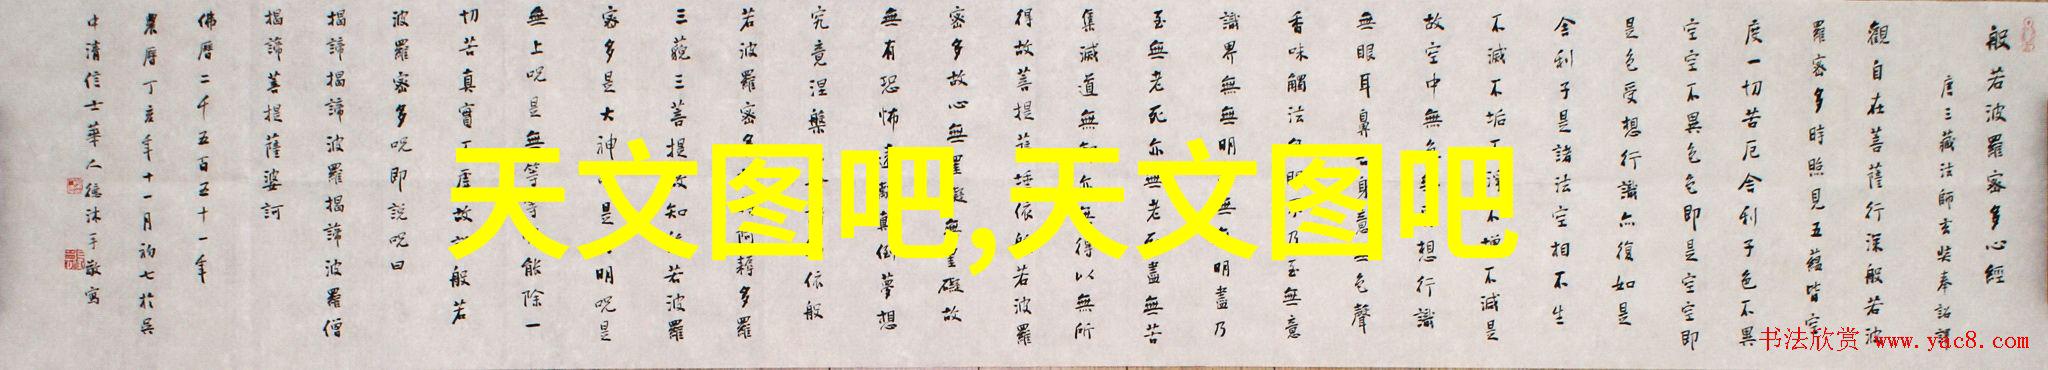 般若波羅密多心經
唐三藏法師玄奘奉詔譯
觀自在菩薩行深般若波
羅密多時照見五蘊皆空
度一切苦厄舍利子色不異
空空不異色色即是空空即
是色受想行識亦復如是
舍利子是諸法空相不生
不滅不垢不淨不增不減是
故空中無色無受想行識
無眼耳鼻舌身意無色聲
香味觸法無眼界乃至無意
識界無無明亦無無明盡乃
至無老死亦無老死盡無苦
集滅道無知亦無得以無所
得故菩提薩埵依般若波羅
密多故心無罣礙無罣礙故
無有恐怖遠離顛倒夢想
究竟涅槃三世諸佛依般
若波羅密多故得阿耨多羅
三藐三菩提故知般若波羅
密多是大神咒是大明咒是
無上咒是無等等咒能除一
切苦真實不虛故說般若
波羅密多咒即說咒曰
揭諦揭諦波羅揭諦波羅僧
揭諦菩提薩婆訶
佛曆二千五百五十一年
農曆丁亥年十一月初七於吳
中清信士華人德沐手敬寫
天文图吧,天文图吧
书法欣赏 www.yac8.com